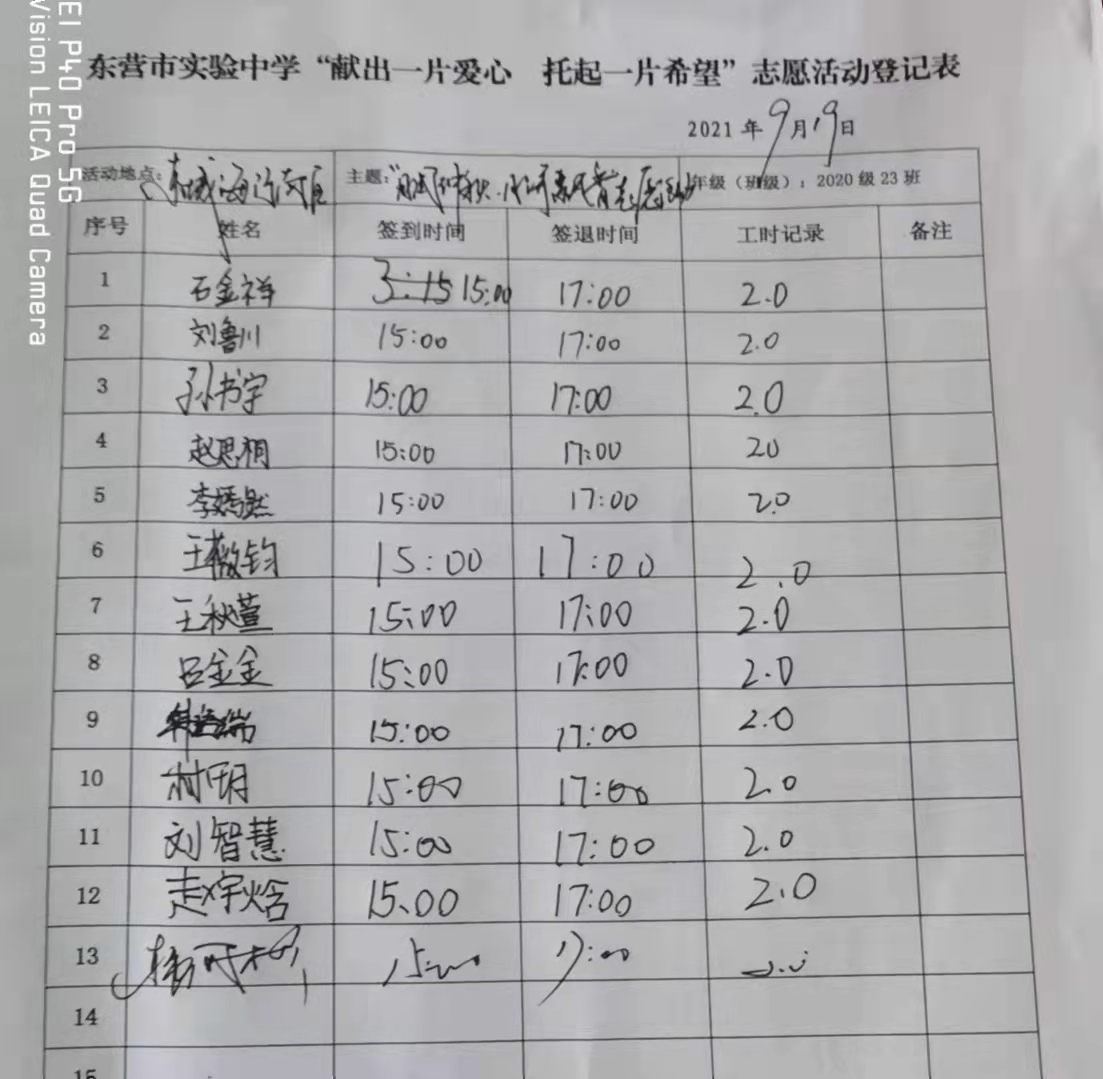 EI P40 Pro 5G
Vision LEICA Quad Camera
东营市实验中学“献出一片爱心 托起一片希望”志愿活动登记表
2021 年 9 月 19 日
活动地点: 东城海 主题: 年级（班级）: 2020 级 23 班
序号 姓名 签到时间 签退时间 工时记录 备注
1 石金祥 3:15 15:00 17:00 2.0
2 刘鲁川 15:00 17:00 2.0
3 孙书宇 15:00 17:00 2.0
4 赵思桐 15:00 17:00 20
5 李嫣然 15:00 17:00 2.0
6 王薇钧 15:00 17:00 2.0
7 王秋萱 15:00 17:00 2.0
8 吕金金 15:00 17:00 2.0
9 15:00 17:00 2.0
10 15:00 17:00 2.0
11 刘智慧 15:00 17:00 2.0
12 赵宇焓 15.00 17:00 2.0
13 15:00 17:00
14
15